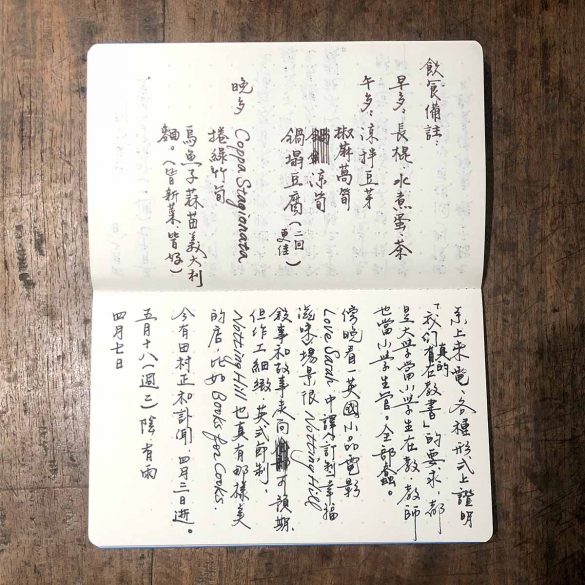 飲食備註:
早多:長棍、水煮蛋、茶
午多:涼拌豆芽
椒蔴萵筍
涼筍
鍋塌豆腐(二回更佳)
晚多 Coppa Stagionata
捲綠竹筍
烏魚子蒜苗義大利
麵。(皆新菜,皆好)
系上來電,各種形式上證明
「我們真的有在教書」的要求,都
是大學當小學生在教,教師
也當小學生管。全部蠢。
傍晚看一英國小品電影
Love Sarah 中譯訂製幸福
滋味,場景很 Notting Hill
敘事和故事走向可預期,
但作工細緻,英式節制,
Notting Hill 也真有那樣美
的店,比如 Books for Cooks.
今有田村正和訃聞,四月三日逝。
五月十八(週二)陰,有雨
四月七日